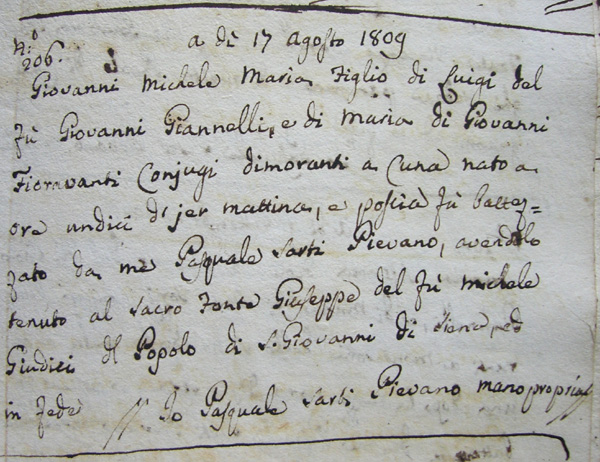 N.º 206. a dì 17 Agosto 1809
Giovanni Michele Maria Figlio di Luigi del
fù Giovanni Giannelli, e di Maria di Giovanni
Fioravanti Conjugi dimoranti a Cuna nato a
ore undici di jer mattina, e poscia fù battez=
zato da me Pasquale Sarti Pievano, avendolo
tenuto al Sacro Fonte Giuseppe del fù Michele
Giudici del Popolo di S. Giovanni di Siena, ed
in fede // Io Pasquale Sarti Pievano mano propria